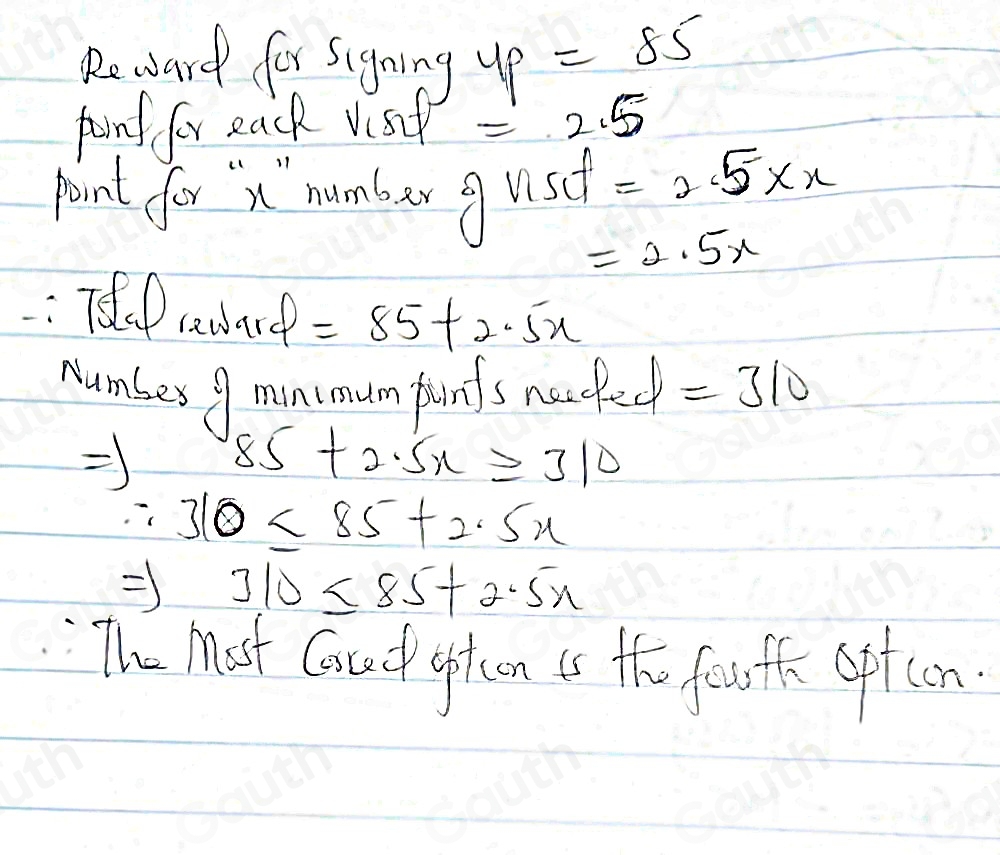 Reward for signing up = 85
point for each visit = 2.5
point for "x" number of visit = 2.5 x x
= 2.5x
∴ Total reward = 85 + 2.5x
Number of minimum points needed = 310
=) 85 + 2.5x ≥ 310
∴ 310 ≤ 85 + 2.5x
=) 310 ≤ 85 + 2.5x
∴ The Most Correct option is the fourth option.